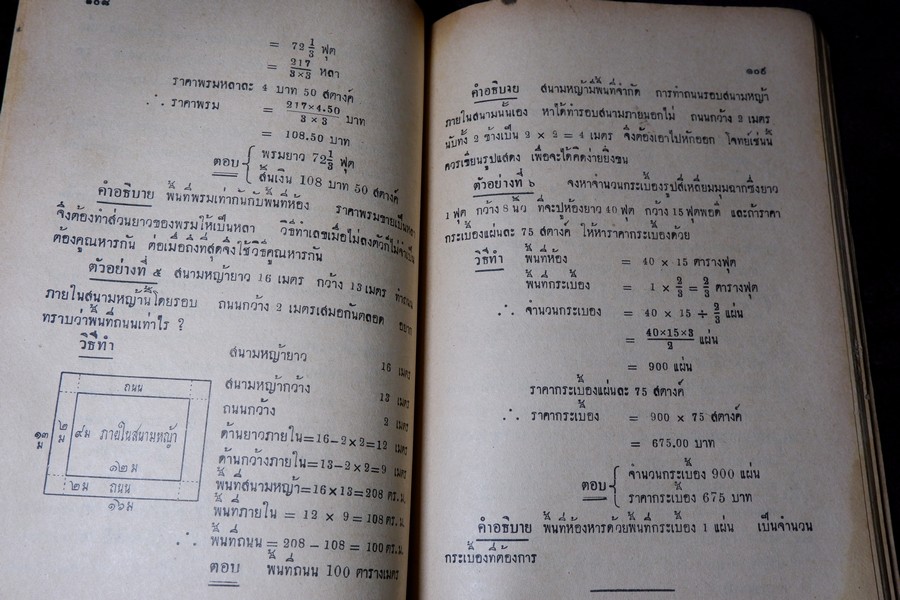 ๑๐๘
= 72 1/3 ฟุต
= 217/3×3 หลา
ราคาพรมหลาละ 4 บาท 50 สตางค์
∴ ราคาพรม = 217×4.50/3 × 3 บาท
= 108.50 บาท
ตอบ { พรมยาว 72 1/3 ฟุต
สิ้นเงิน 108 บาท 50 สตางค์
คำอธิบาย พื้นที่พรมเท่ากันกับพื้นที่ห้อง ราคาพรมขายเป็นหลา
จึงต้องทำส่วนยาวของพรมให้เป็นหลา วิธีทำเลขเมื่อไม่ลงตัวก็ไม่จำเป็น
ต้องคูณหารกัน ต่อเมื่อถึงที่สุดจึงใช้วิธีคูณหารกัน
ตัวอย่างที่ ๕ สนามหญ้ายาว 16 เมตร กว้าง 13 เมตร ทำถนน
ภายในสนามหญ้านี้โดยรอบ ถนนกว้าง 2 เมตรเสมอกันตลอด อยาก
ทราบว่าพื้นที่ถนนเท่าไร ?
วิธีทำ
สนามหญ้ายาว 16 เมตร
สนามหญ้ากว้าง 13 เมตร
ถนนกว้าง 2 เมตร
ด้านยาวภายใน=16-2×2=12 เมตร
ด้านกว้างภายใน=13-2×2=9 เมตร
พื้นที่สนามหญ้า=16×13=208 ตร.ม.
พื้นที่ภายใน = 12 × 9 = 108 ตร.ม.
∴ พื้นที่ถนน = 208 - 108 = 100 ตร.ม.
ตอบ พื้นที่ถนน 100 ตารางเมตร
ถนน
๒ ม
๙ม ภายในสนามหญ้า
๑๓ ม
๑๒ ม
๒ม ถนน
๑๖ ม
๑๐๙
คำอธิบาย สนามหญ้ามีพื้นที่จำกัด การทำถนนรอบสนามหญ้า
ภายในสนามนั้นเอง หาได้ทำรอบสนามภายนอกไม่ ถนนกว้าง 2 เมตร
นับทั้ง 2 ข้างเป็น 2 × 2 = 4 เมตร จึงต้องเอาไปหักออก โจทย์เช่นนี้
ควรเขียนรูปแสดง เพื่อจะได้คิดง่ายยิ่งขึ้น
ตัวอย่างที่ ๖ จงหาจำนวนกระเบื้องรูปสี่เหลี่ยมมุมฉากซึ่งยาว
1 ฟุต กว้าง 8 นิ้ว ที่จะปูห้องยาว 40 ฟุต กว้าง 15 ฟุตพอดี และถ้าราคา
กระเบื้องแผ่นละ 75 สตางค์ ให้หาราคากระเบื้องด้วย
วิธีทำ พื้นที่ห้อง = 40 × 15 ตารางฟุต
พื้นที่กระเบื้อง = 1 × 2/3 = 2/3 ตารางฟุต
∴ จำนวนกระเบื้อง = 40 × 15 ÷ 2/3 แผ่น
= 40×15×3/2 แผ่น
= 900 แผ่น
ราคากระเบื้องแผ่นละ 75 สตางค์
∴ ราคากระเบื้อง = 900 × 75 สตางค์
= 675.00 บาท
ตอบ { จำนวนกระเบื้อง 900 แผ่น
ราคากระเบื้อง 675 บาท
คำอธิบาย พื้นที่ห้องหารด้วยพื้นที่กระเบื้อง 1 แผ่น เป็นจำนวน
กระเบื้องที่ต้องการ